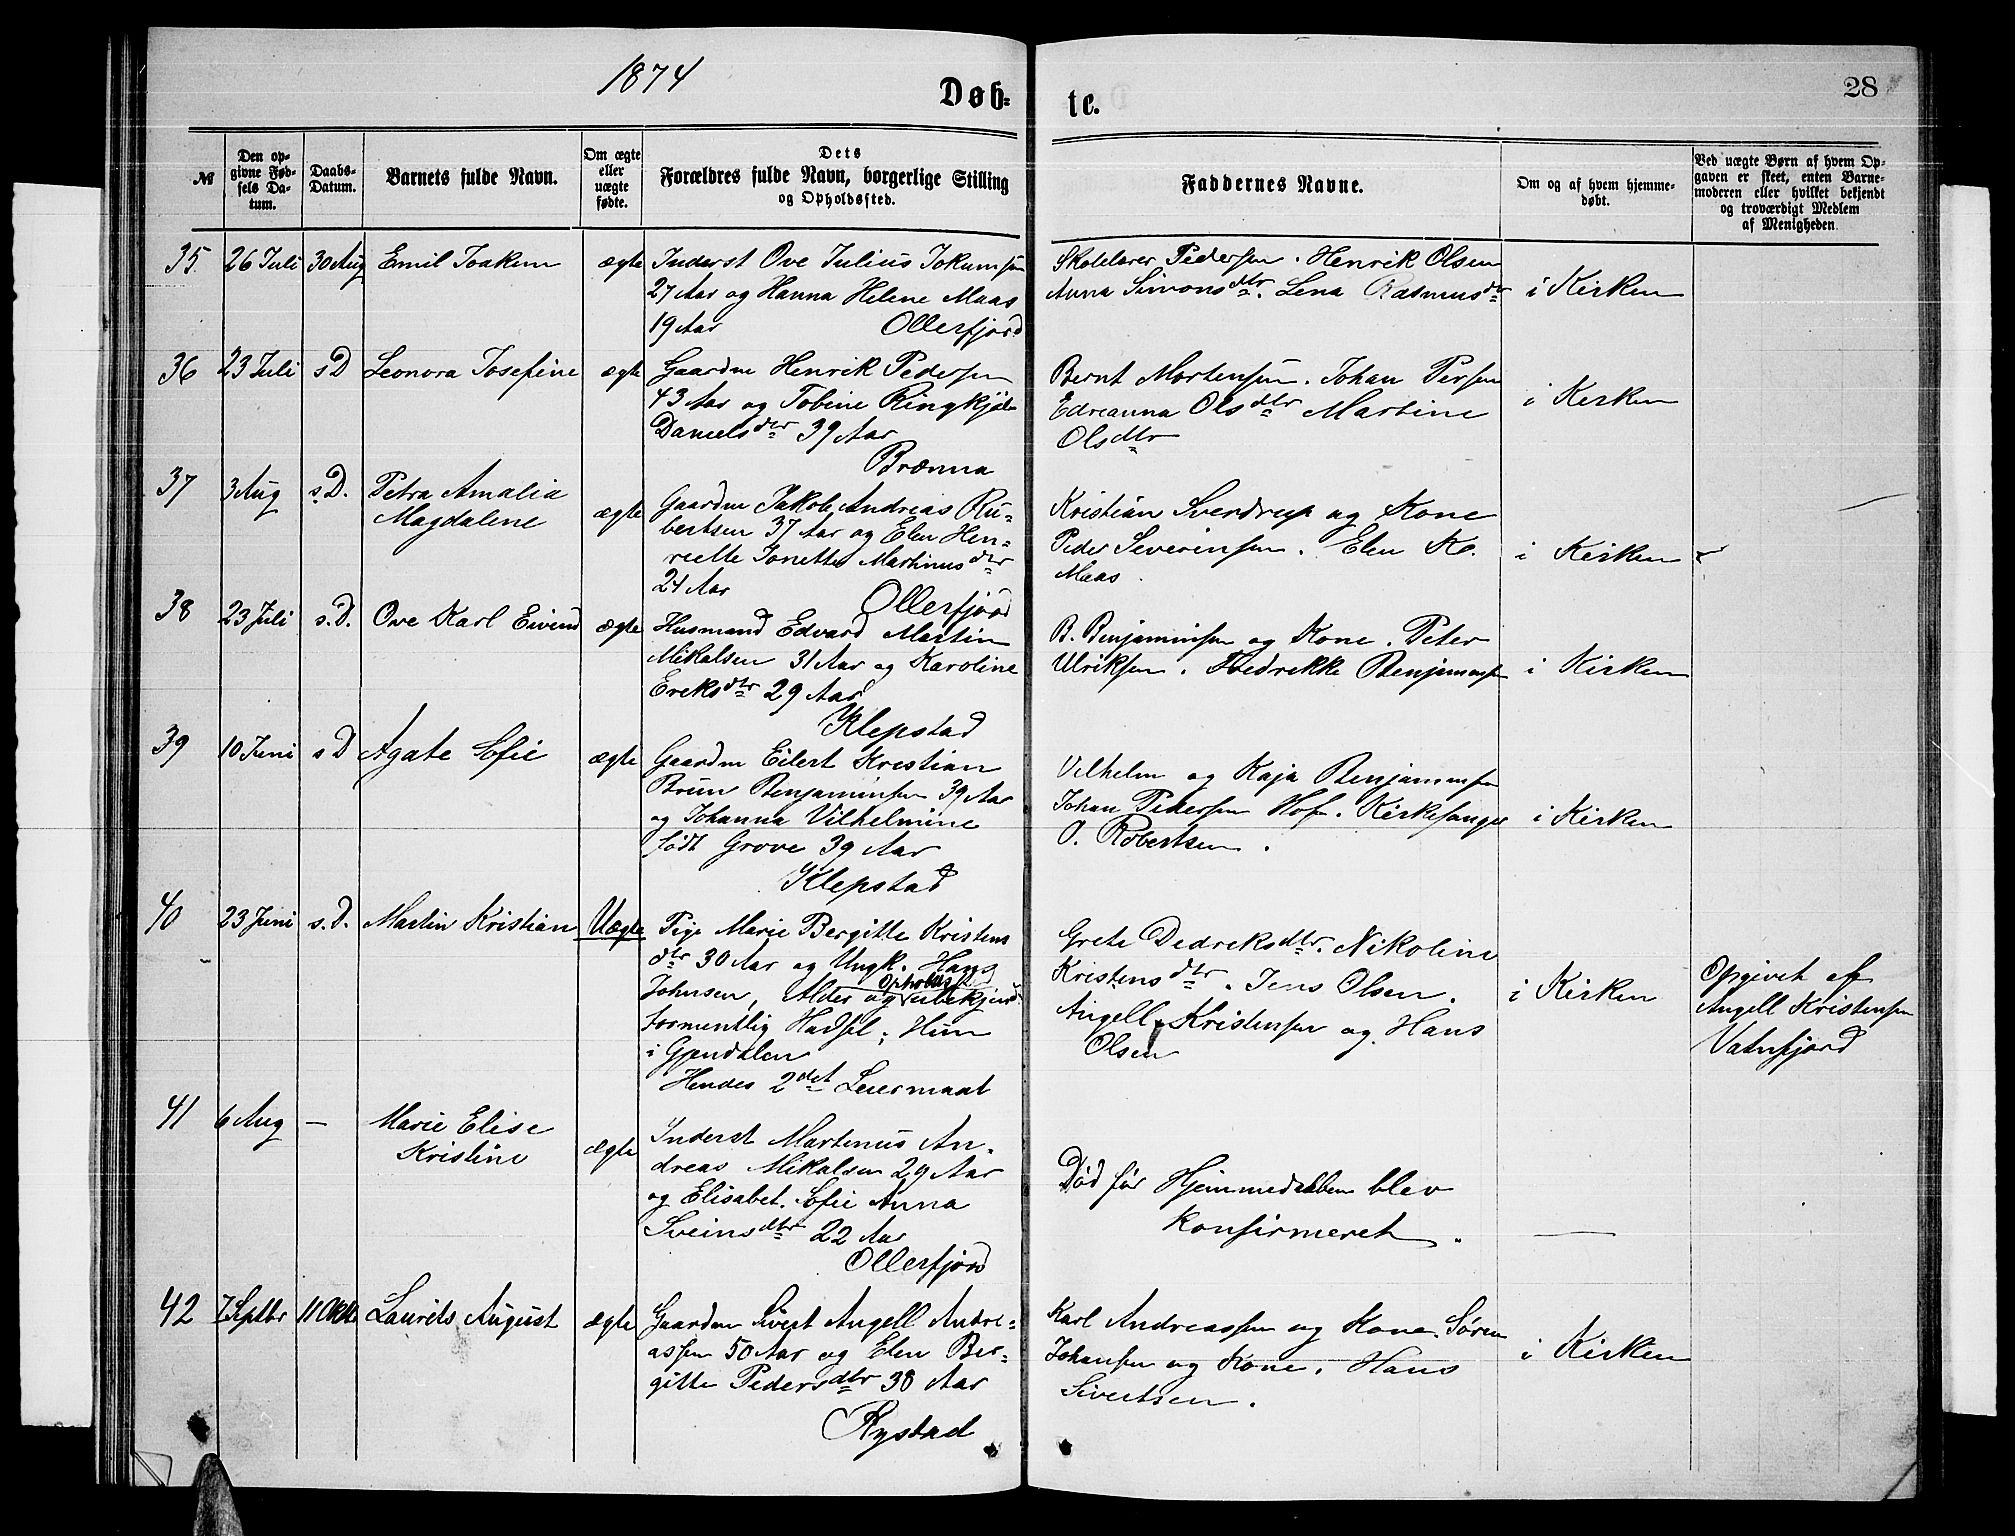 1874
Døb-
te.
28
№
Den op-
givne Fød-
sels Da-
tum.
Daabs-
Datum.
Barnets fulde Navn.
Om ægte
eller
uægte
fødte.
Dets
Forældres fulde Navn, borgerlige Stilling
og Opholdssted.
Faddernes Navne.
Om og af hvem hjemme-
døbt.
Ved uægte Børn af hvem Op-
gaven er skeet, enten Barne-
moderen eller hvilket bekjendt
og troværdigt Medlem
af Menigheden.
35. 26 Juli 30 Aug Emil Joakim ægte
Inderst Ove Julius Jokumsen
27 Aar og Hanna Helene Maas
19 Aar Ollerfjord
Skolelærer Pedersen. Henrik Olsen
Anna Simonsdtr. Lena Rasmusdtr
i Kirken
36 23 Juli s D Leonora Josefine ægte
Gaardm Henrik Pedersen
43 Aar og Tobine Ringkjøb
Danielsdtr 39 Aar
Brenna
Bernt Mortensen. Johan Persen
Edreanna Olsdtr Martine
Olsdtr
i Kirken
37 3 Aug s.D. Petra Amalia
Magdalene ægte
Gaardm Jakob Andreas Ru-
bertsen 37 Aar og Elen Hen-
riette Jonette Martinusdtr
24 Aar Ollerfjord
Kristian Sverdrup og Kone
Peder Severinsen. Elen K.
Maas.
i Kirken
38 23 Juli s.D. Ove Karl Eivind ægte
Husmand Edvard Martin
Mikalsen 31 Aar og Karoline
Ereksdtr 29 Aar
Klepstad
B. Benjaminsen og Kone. Peter
Ulriksen. Fredrekke Benjaminsen
i Kirken
39 10 Juni s D Agate Sofie ægte
Gaardm Eilert Kristian
Bruun Benjaminsen 39 Aar
og Johanna Vilhelmine
født Grove 39 Aar
Klepstad
Vilhelm og Kaja Benjaminsen
Johan Pedersen Hof. Kirkesanger
O. Robertsen.
i Kirken
40 23 Juni s.D. Martin Kristian Uægte
Pige Marie Bergitte Kristens
dtr 30 Aar og Ungk. Hans
Johnsen, Alder og Opholdsst ubekjend
formentlig Hadsel; Hun
i Gjendalen
Hendes 2det Leiermaal
Grete Dedreksdtr. Nikoline
Kristensdtr. Jens Olsen.
Angell Kristensen og Hans
Olsen
i Kirken
Opgivet af
Angell Kristensen
Vatnfjord
41 6 Aug — Marie Elise
Kristine ægte
Inderst Martinus An-
dreas Mikalsen 29 Aar
og Elisabet Sofie Anna
Sveinsdtr 22 Aar
Ollerfjord
Død før Hjemmedaaben blev
Konfirmeret.
42 7 Septbr 11 Oktb Laurits August ægte
Gaardm Sivert Angell Andre-
assen 50 Aar og Elen Ber-
gitte Pedersdtr 38 Aar
Rystad
Karl Andreassen og Kone. Søren
Johansen og Kone. Hans
Sivertsen.
i Kirken